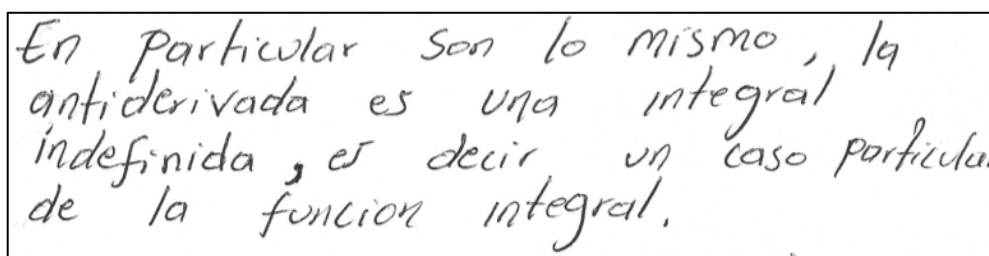 En particular son lo mismo, la
antiderivada es una integral
indefinida, es decir un caso particular
de la funcion integral.